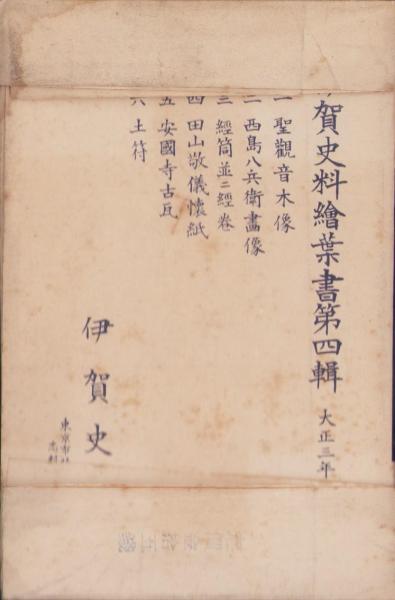 賀史料繪葉書第四輯 大正三年
一 聖觀音木像
二 西島八兵衛畫像
三 經筒並ニ經卷
四 田山敬儀懷紙
五 安國寺古瓦
六 土符
伊賀史
東京市